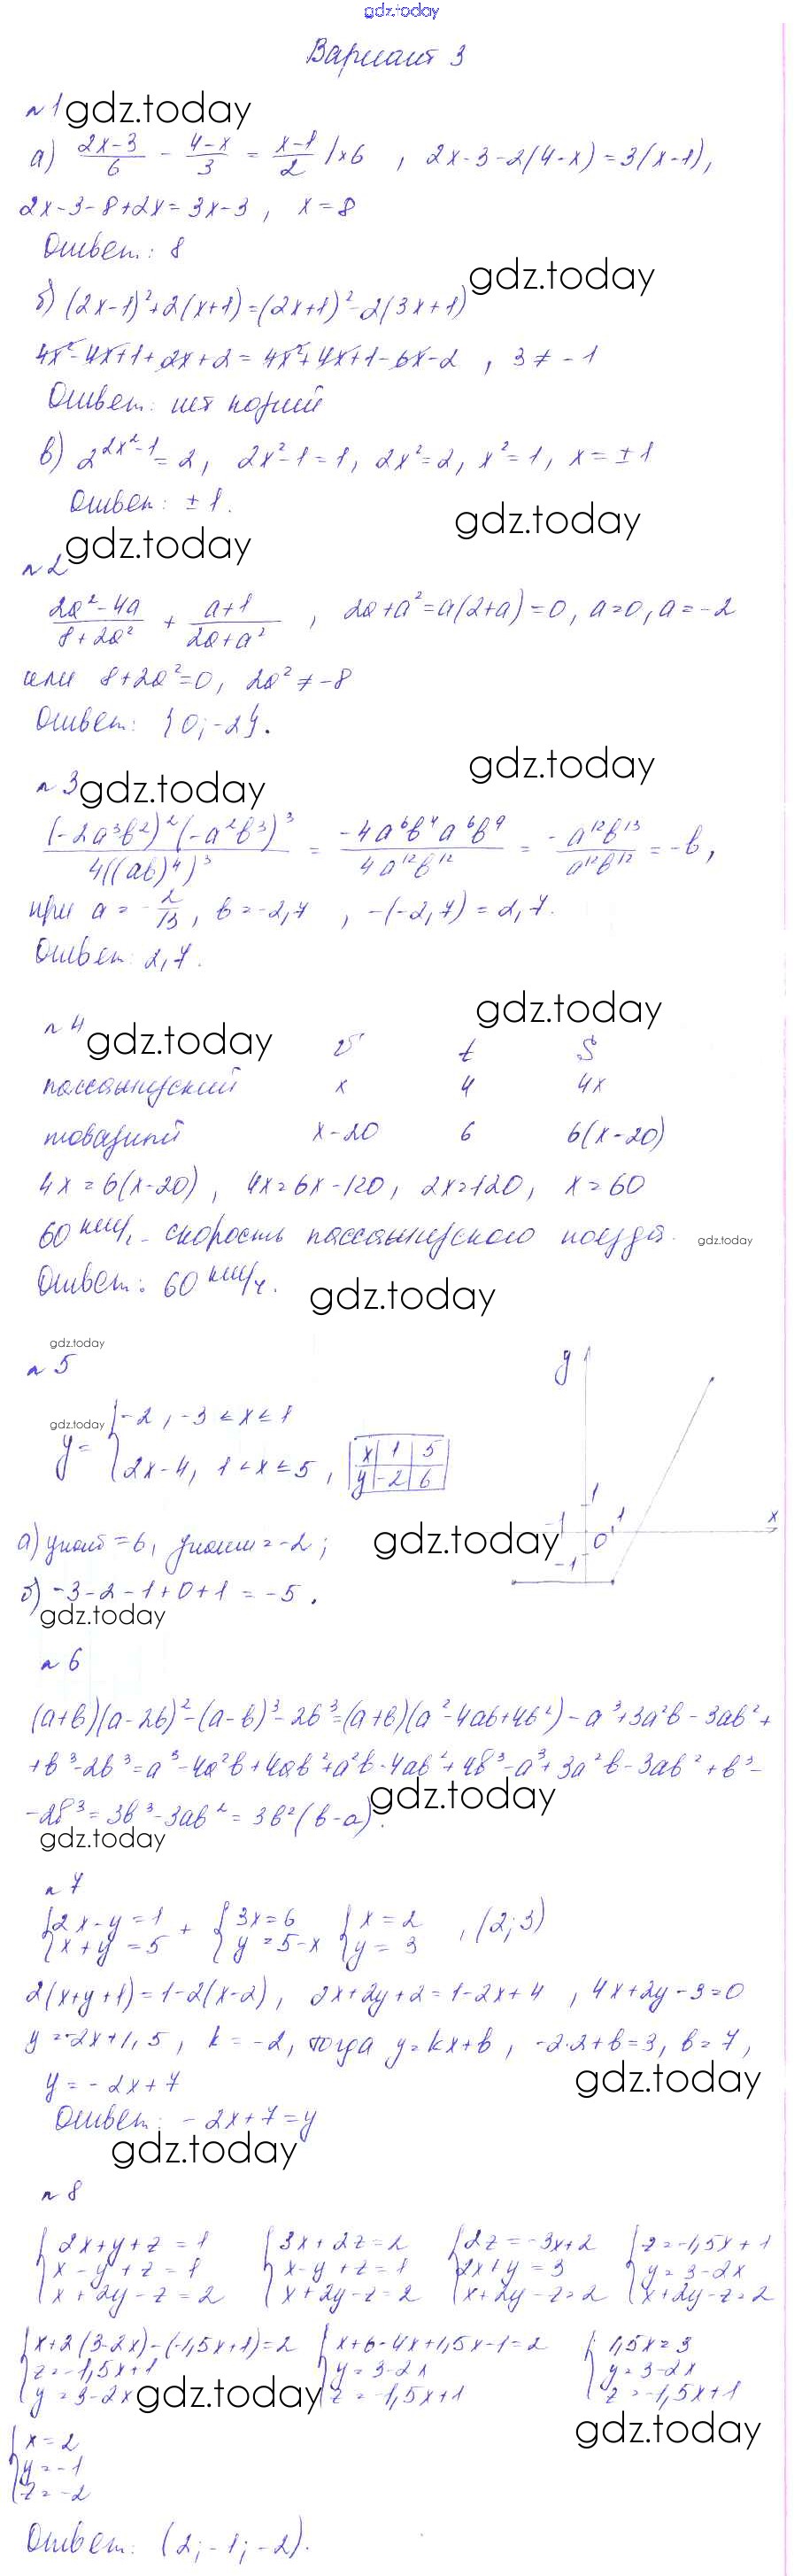 gdz.today
Вариант 3
№1 gdz.today
а) (2x-3)/6 - (4-x)/3 = (x-1)/2 |×6 , 2x-3-2(4-x)=3(x-1),
2x-3-8+2x=3x-3, x=8
Ответ: 8
gdz.today
б) (2x-1)²+2(x+1)=(2x+1)²-2(3x+1)
4x²-4x+1+2x+2=4x²+4x+1-6x-2 , 3≠-1
Ответ: нет корней
в) 2^(2x²-1)=2, 2x²-1=1, 2x²=2, x²=1, x=±1
Ответ: ±1.
gdz.today
gdz.today
№2
(2a²-4a)/(8+2a²) + (a+1)/(2a+a²) , 2a+a²=a(2+a)=0, a=0, a=-2
или 8+2a²=0, 2a²≠-8
Ответ: {0;-2}.
gdz.today
№3 gdz.today
(-2a³b²)²(-a²b³)³/(4((ab)⁴)³) = -4a⁶b⁴a⁶b⁹/(4a¹²b¹²) = -a¹²b¹³/(a¹²b¹²) = -b,
при a=-2/13, b=-2,7 , -(-2,7)=2,7.
Ответ: 2,7.
gdz.today
№4 gdz.today
v t S
пассажирский x 4 4x
товарный x-20 6 6(x-20)
4x=6(x-20), 4x=6x-120, 2x=120, x=60
60 км/ч - скорость пассажирского поезда. gdz.today
Ответ: 60 км/ч.
gdz.today
gdz.today
№5
y
gdz.today
y={-2, -3≤x≤1
{2x-4, 1<x≤5,
x 1 5
y -2 6
1
-1 0 1 x
-1
а) yнаиб=6, yнаим=-2;
gdz.today
б) -3-2-1+0+1=-5.
gdz.today
№6
(a+b)(a-2b)²-(a-b)³-2b³=(a+b)(a²-4ab+4b²)-a³+3a²b-3ab²+
+b³-2b³=a³-4a²b+4ab²+a²b-4ab²+4b³-a³+3a²b-3ab²+b³-
-2b³=3b³-3ab²=3b²(b-a).
gdz.today
gdz.today
№7
{2x-y=1 + {3x=6 {x=2 , (2;3)
{x+y=5 {y=5-x {y=3
2(x+y+1)=1-2(x-2), 2x+2y+2=1-2x+4 , 4x+2y-3=0
y=-2x+1,5, k=-2, тогда y=kx+b, -2·2+b=3, b=7,
y=-2x+7
gdz.today
Ответ: -2x+7=y
gdz.today
№8
{2x+y+z=1 {3x+2z=2 {2z=-3x+2 {z=-1,5x+1
{x-y+z=1 {x-y+z=1 {2x+y=3 {y=3-2x
{x+2y-z=2 {x+2y-z=2 {x+2y-z=2 {x+2y-z=2
{x+2(3-2x)-(-1,5x+1)=2 {x+6-4x+1,5x-1=2 {1,5x=3
{z=-1,5x+1 {y=3-2x {y=3-2x
{y=3-2x {z=-1,5x+1 {z=-1,5x+1
gdz.today
gdz.today
{x=2
{y=-1
{z=-2
Ответ: (2;-1;-2).